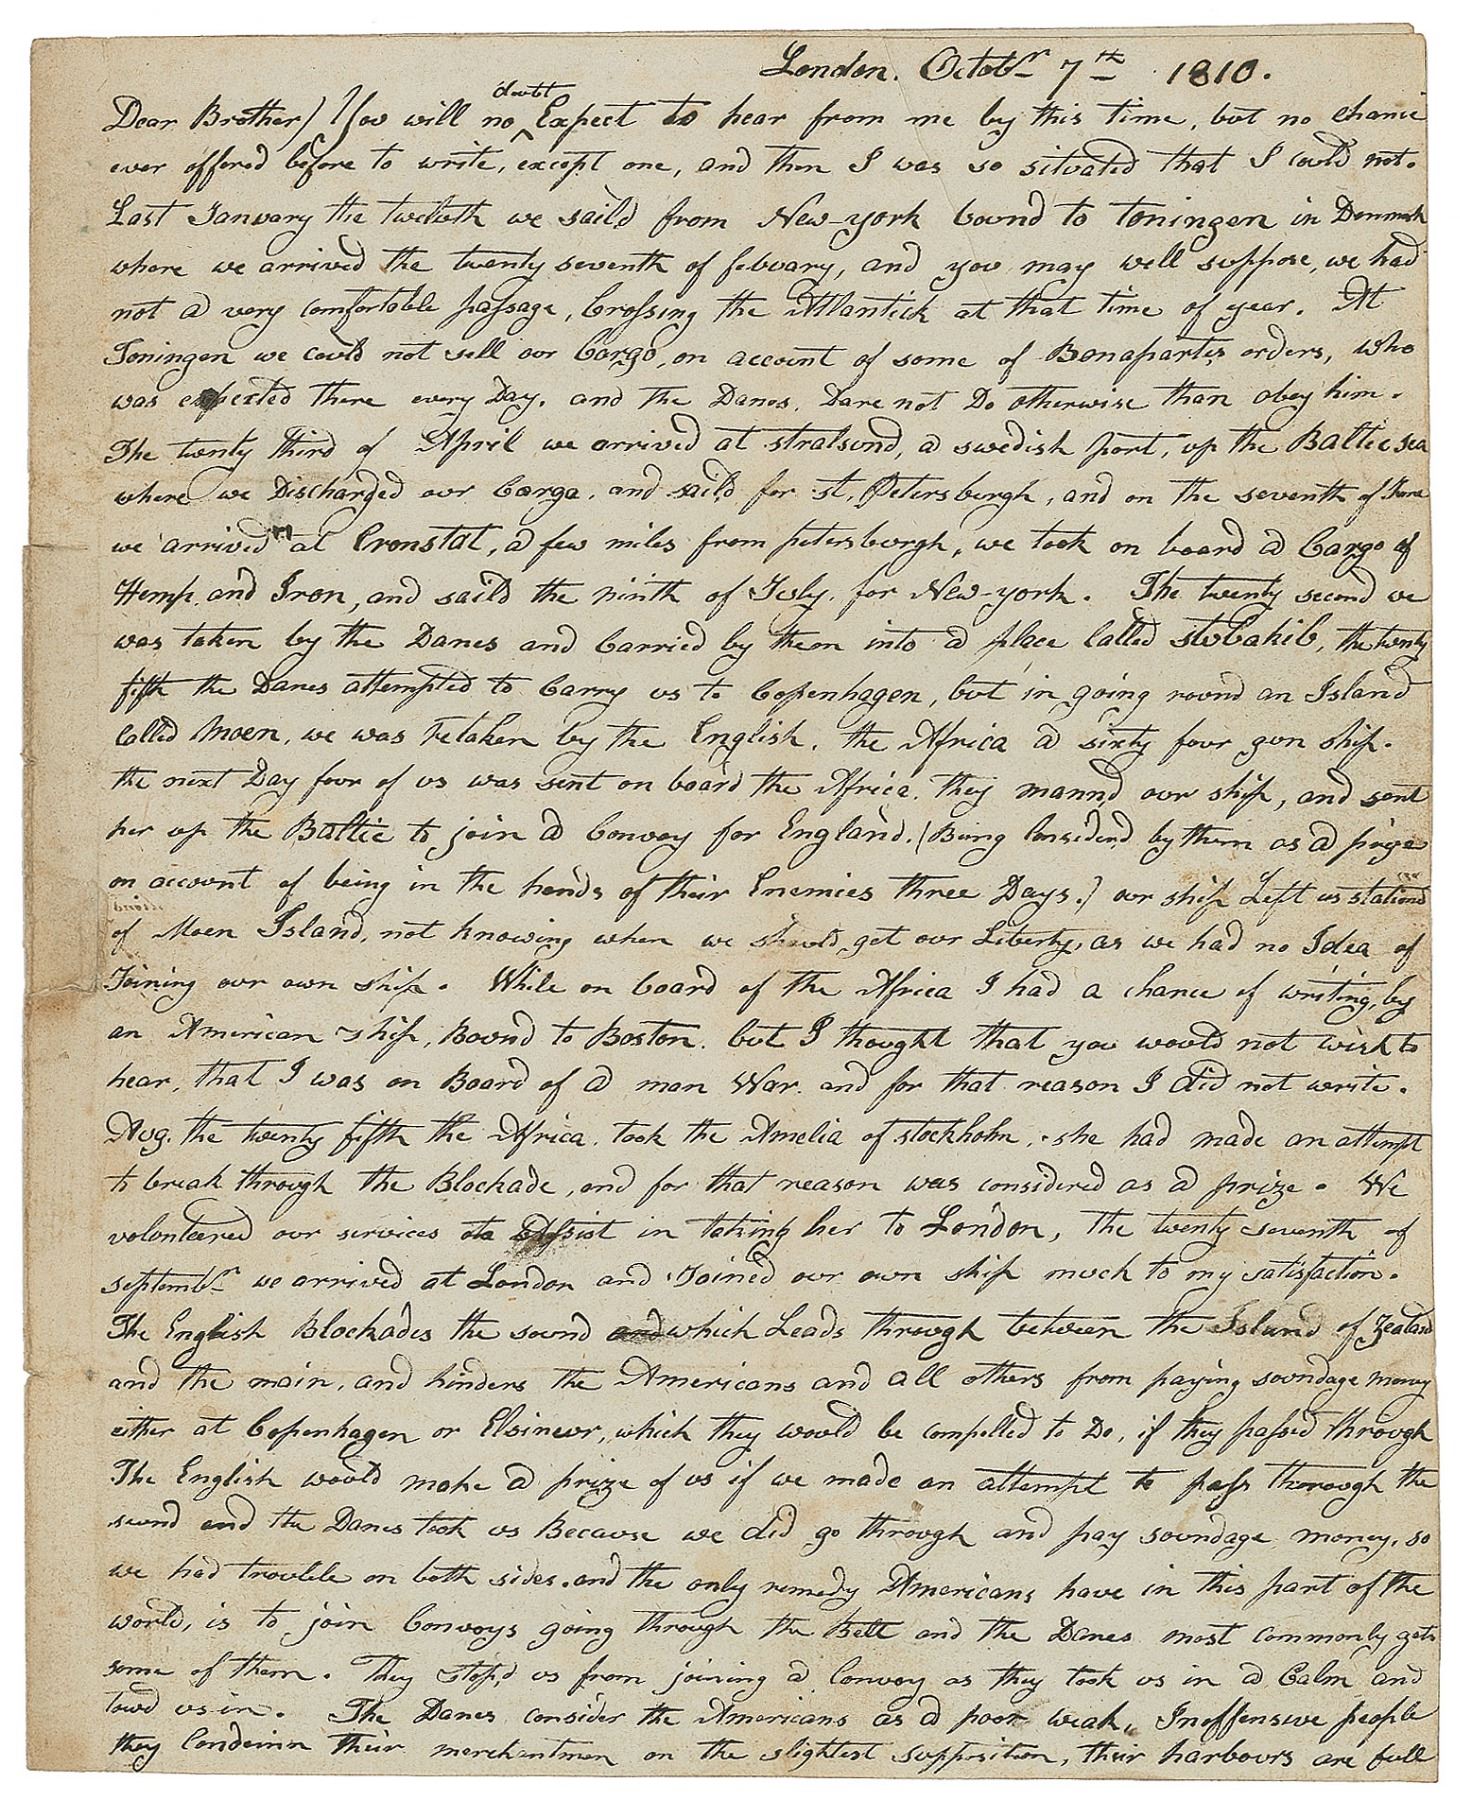 London. Octobr 7th 1810.
Dear Brother) You will no doubt Expect to hear from me by this time, but no chance
ever offered before to write, except one, and then I was so situated that I could not.
Last January the twelvth we saild from New-york bound to Toningen in Denmark
where we arrived the twenty seventh of febuary, and you may well suppose, we had
not a very comfortable passage, Crossing the Atlantick at that time of year. At
Toningen we could not sell our Cargo, on account of some of Bonapartes orders, who
was expected there every Day. and the Danes. Dare not Do otherwise than obey him.
The twenty third of April we arrived at stralsund, a swedish port, up the Baltic sea
where we Discharged our Cargo. and saild for st. Petersburgh, and on the seventh of June
we arrived at Cronstat, a few miles from petersburgh, we took on board a Cargo of
Hemp and Iron, and saild the ninth of July. for New-york. The twenty second we
was taken by the Danes and Carried by them into a place Called stubakib, the twenty
fifth the Danes attempted to Carry us to Copenhagen, but in going round an Island
Called Moen, we was retaken by the English. the Africa a sixty four gun ship.
the next Day four of us was sent on board the Africa. they mannd our ship, and sent
her up the Baltic to join a Convoy for England. (Being Considerd by them as a prize
on account of being in the hands of their Enemies three Days.) our ship Left us stationd
of Moen Island, not knowing when we should get our Liberty, as we had no Idea of
Joining our own ship. While on board of the Africa I had a chance of writing, by
an American ship, Bound to Boston. but I thought that you would not wish to
hear, that I was on Board of a man War. and for that reason I did not write.
Aug. the twenty fifth the Africa. took the Amelia of stockholm, she had made an attempt
to break through the Blockade, and for that reason was considered as a prize. We
volonteered our services to assist in taking her to London, the twenty seventh of
septembr we arrived at London and Joined our own ship much to my satisfaction.
The English Blockades the sound and which Leads through between the Island of Zealand
and the main, and hinders the Americans and all others from paying soundage money
either at Copenhagen or Elsineur, which they would be compelled to Do, if they passd through
The English would make a prize of us if we made an attempt to pass thorough the
sound and the Danes took us Because we did go through and pay soundage money, so
we had trouble on both sides. and the only remedy Americans have in this part of the
world, is to join Convoys going through the Belt and the Danes most commonly gets
some of them. They stopd us from joining a Convoy as they took us in a Calm and
towd us in. The Danes consider the Americans as a poor weak, Inoffensive people
they Condemn their merchantmen on the slightest supposition, their harbours are full